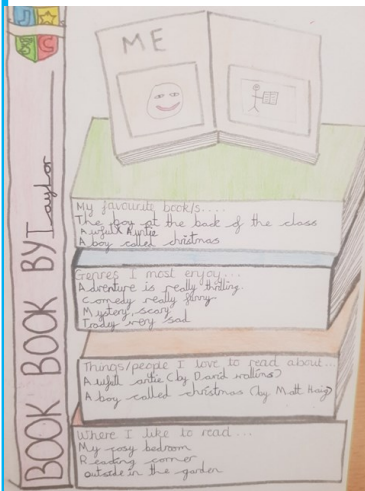 ME
BOOK BOOK BY Taylor
My favourite book/s....
The boy at the back of the class
Awfull Auntie
A boy called christmas
Genres I most enjoy...
Adventure is really thrilling.
Comedy really funny
Mystery, scary
Tradey very sad
Things/people I love to read about...
Awfull antie (by David wallims)
A boy called christmas (by Matt Haig)
Where I like to read...
My cosy bedroom
Reading corner
outside in the garden